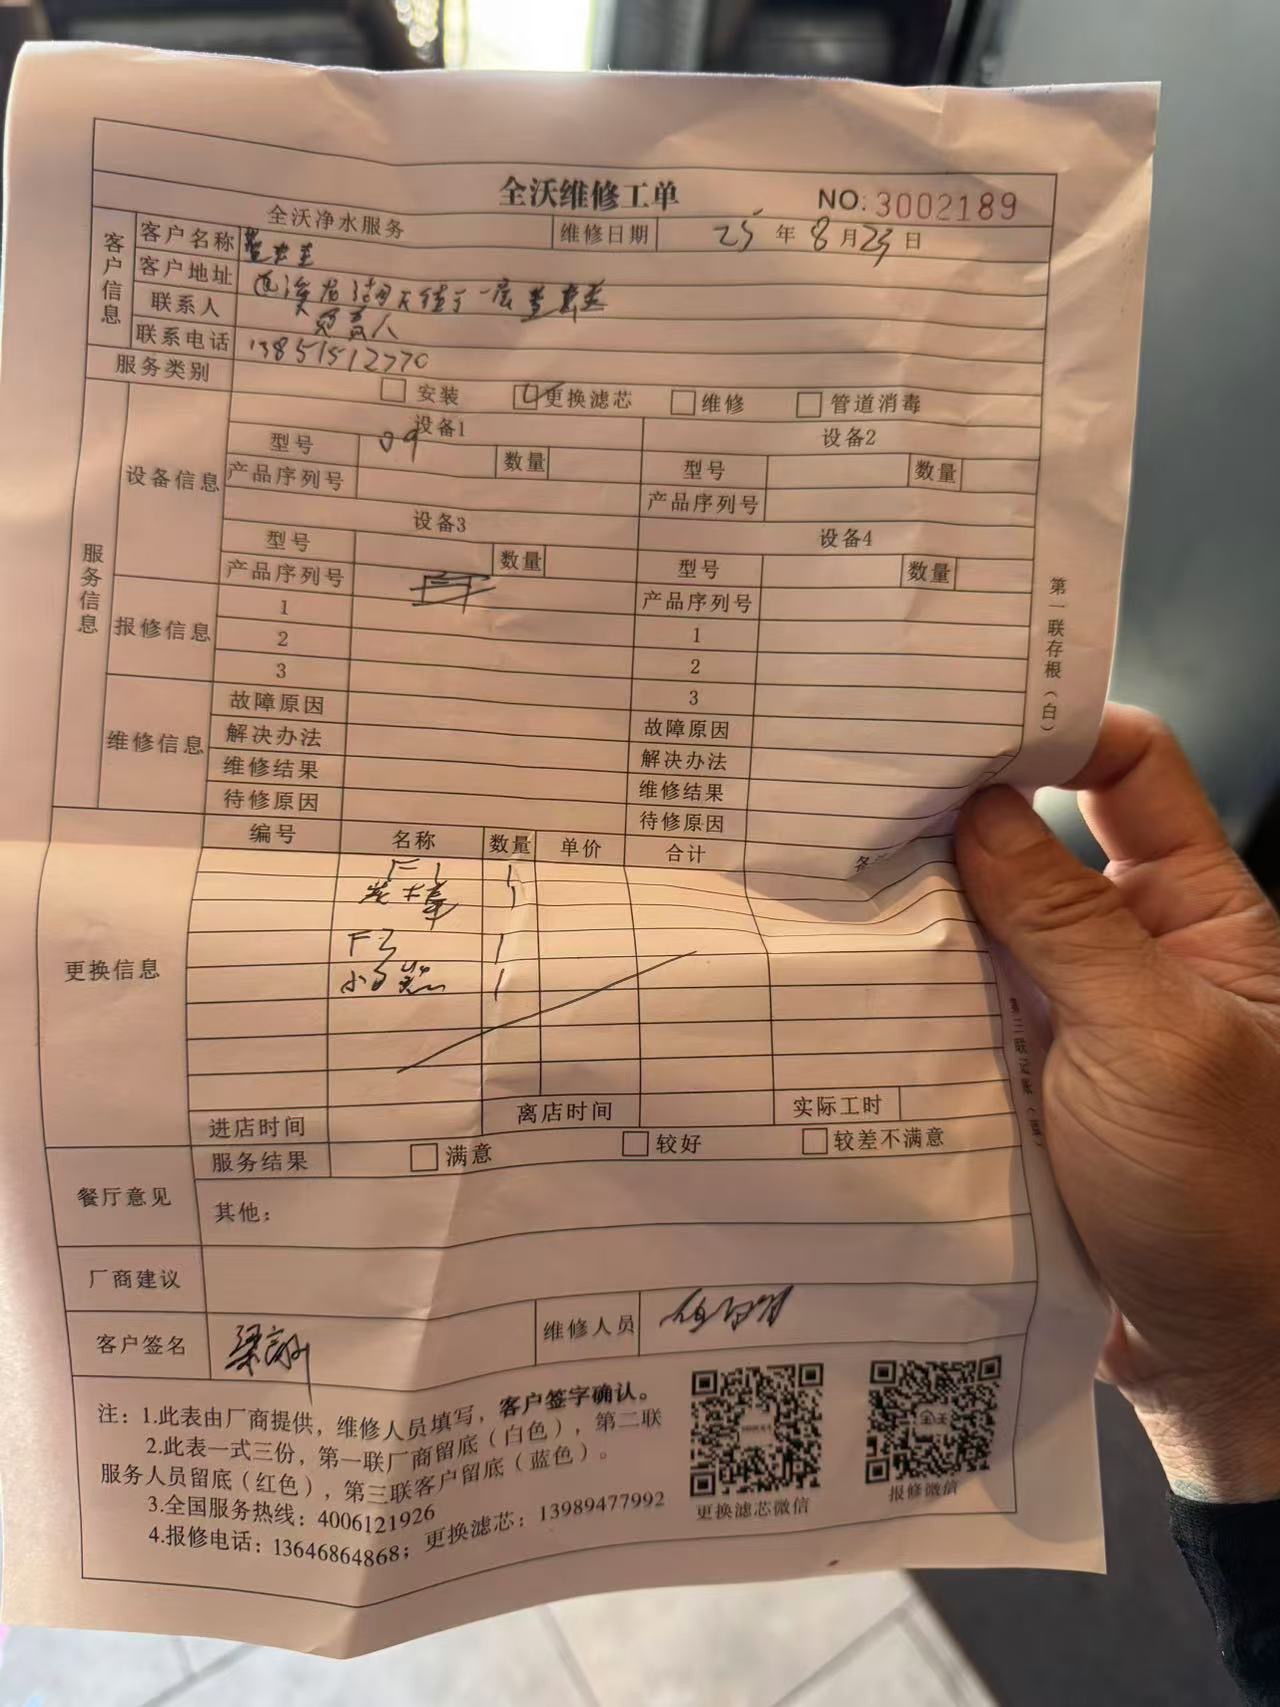 全沃维修工单 NO:3002189
全沃净水服务 维修日期 25年8月23日
客户信息
客户名称
客户地址 龙湖天街 一层
联系人 负责人
联系电话 13851512770
服务类别 安装 更换滤芯 维修 管道消毒
服务信息
设备信息
设备1 设备2
型号 09 数量 型号 数量
产品序列号 产品序列号
设备3 设备4
型号 数量 型号 数量
产品序列号 产品序列号
报修信息
1 1
2 2
3 3
维修信息
故障原因 故障原因
解决办法 解决办法
维修结果 维修结果
待修原因 待修原因
更换信息
编号 名称 数量 单价 合计
F-1 1
1
F3 1
1
进店时间 离店时间 实际工时
餐厅意见
服务结果 满意 较好 较差不满意
其他：
厂商建议
客户签名 维修人员
注：1.此表由厂商提供，维修人员填写，客户签字确认。
2.此表一式三份，第一联厂商留底（白色），第二联
服务人员留底（红色），第三联客户留底（蓝色）。
3.全国服务热线：4006121926
4.报修电话：13646864868；更换滤芯：13989477992
更换滤芯微信 报修微信
第一联存根（白）